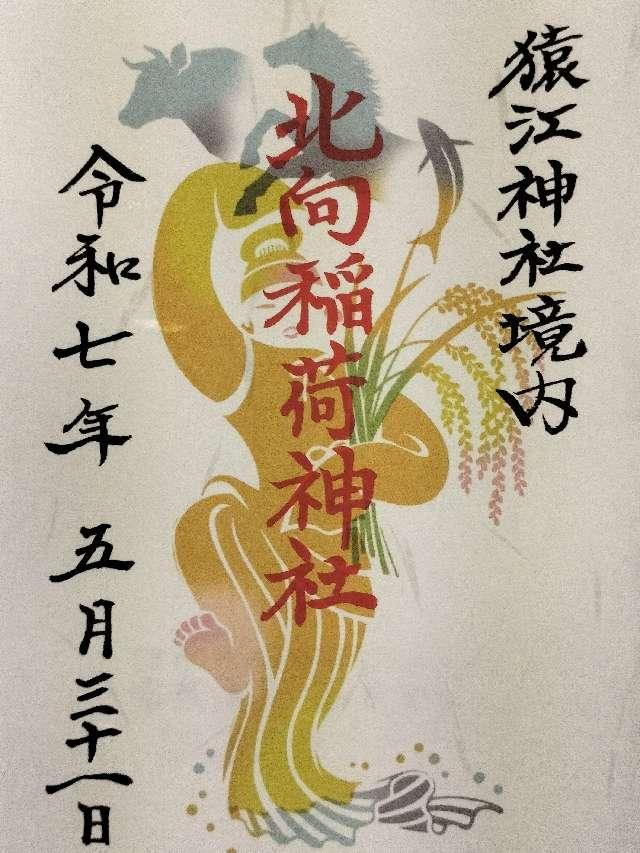 猿江神社境内
北向稲荷神社
令和七年 五月三十一日